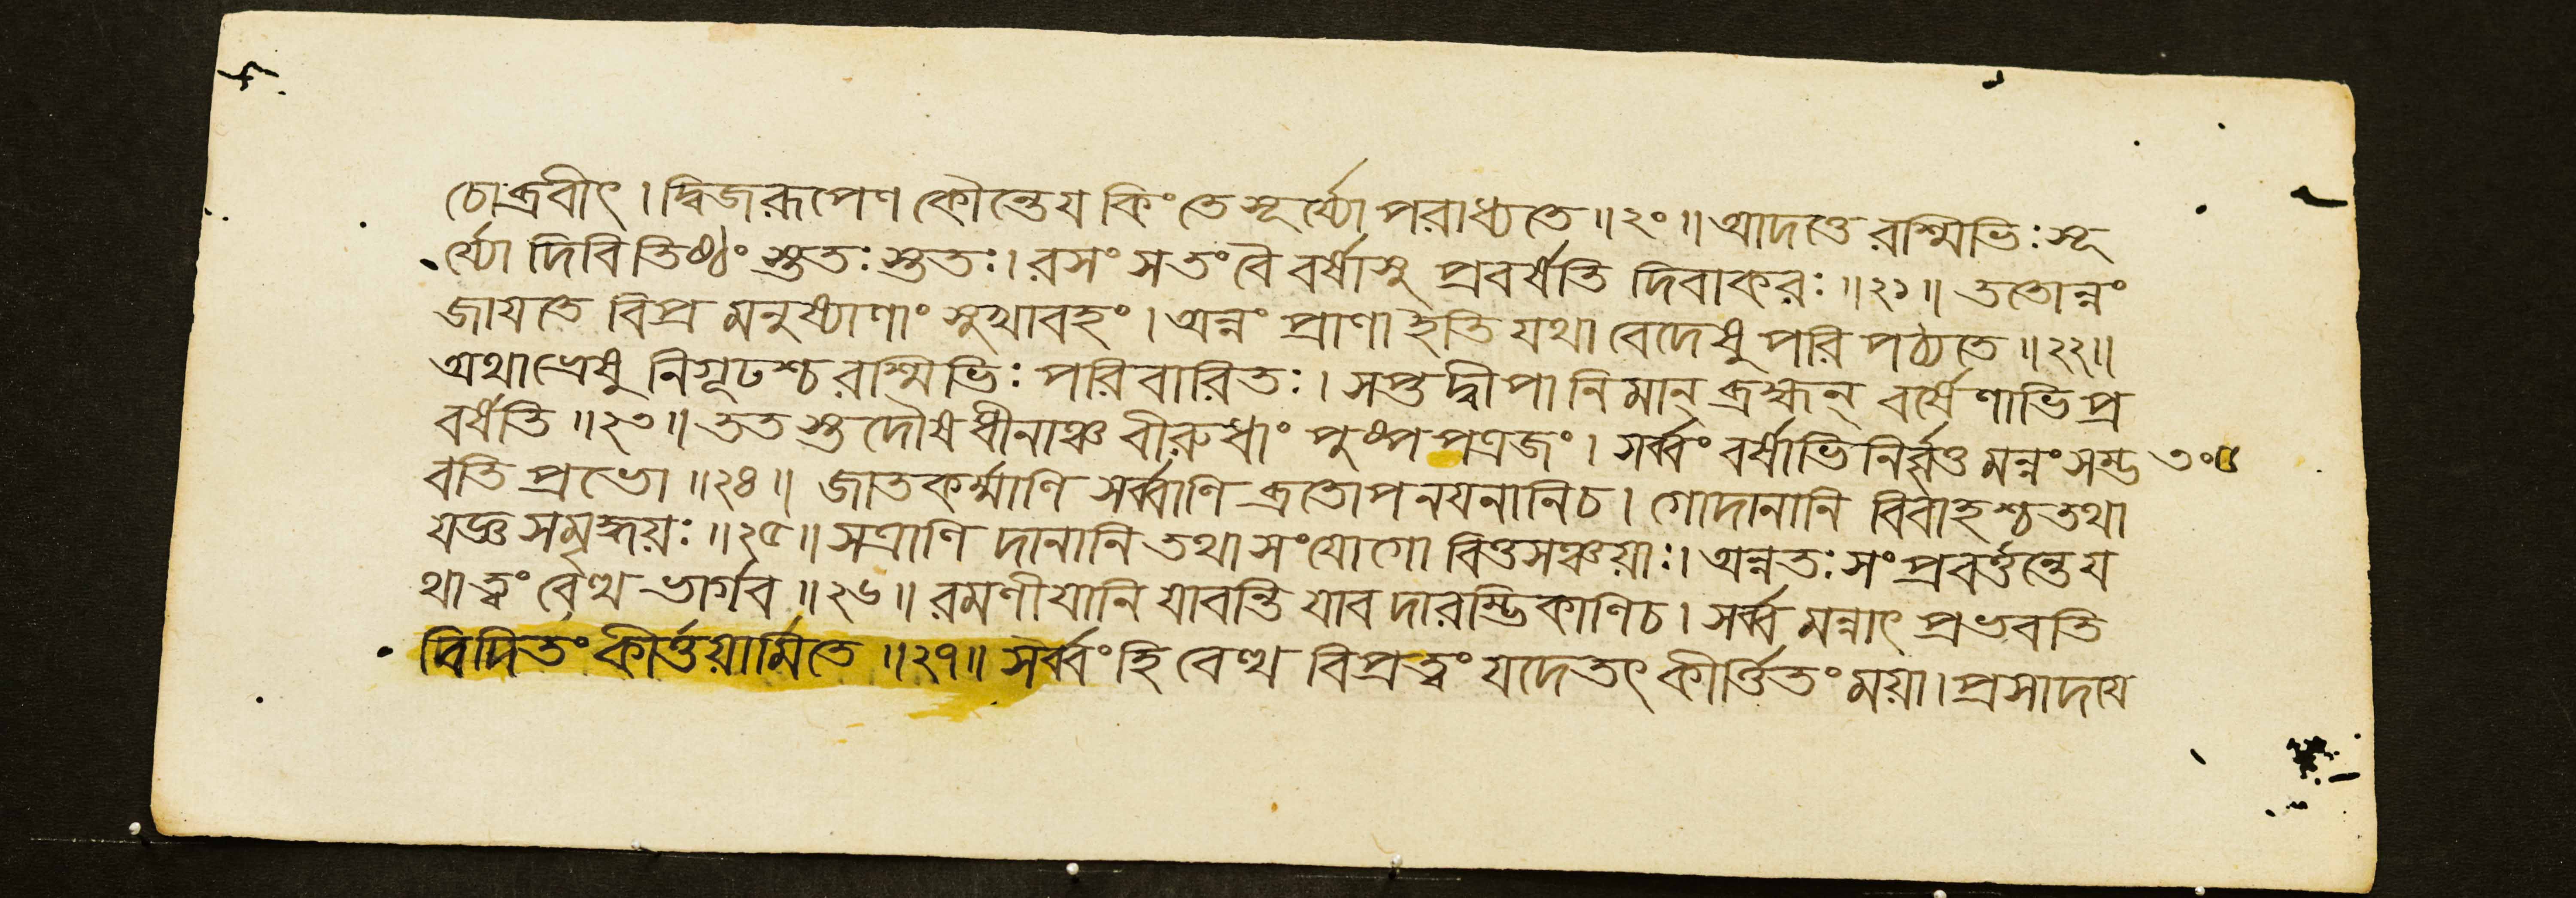 চোব্রবীৎ । দ্বিজরূপেণ কৌন্তেয কিং তে সূর্য্যো পরাধ্যতে ॥ ২০ ॥ আদত্তে রশ্মিভিঃ সূ
র্য্যো দিবি তিষ্ঠং স্তুতঃ স্তুতঃ । রসং সতং বৈ বর্ষাসু প্রবর্ষতি দিবাকরঃ ॥ ২১ ॥ ততোন্নং
জাযতে বিপ্র মনুষ্যাণাং সুখাবহং । অন্নং প্রাণা ইতি যথা বেদেষু পরি পঠ্যতে ॥ ২২ ॥
অথাভ্রেষু নিগূঢশ্চ রশ্মিভিঃ পরিবারিতঃ । সপ্তদ্বীপানিমান্ ব্রহ্মন্ বর্ষেণাভিপ্র
বর্ষতি ॥ ২৩ ॥ ততস্তদৌষধীনাঞ্চ বীরুধাং পুষ্পপত্রজং । সর্ব্বং বর্ষাভিনির্ব্বৃত্ত মন্নং সম্ভ ৩০৫
বতি প্রভো ॥ ২৪ ॥ জাতকর্ম্মাণি সর্ব্বাণি ব্রতোপনযনানিচ । গোদানানি বিবাহশ্চ তথা
যজ্ঞ সমৃদ্ধয়ঃ ॥ ২৫ ॥ সত্রাণি দানানি তথা সংযোগো বিত্তসঞ্চয়াঃ । অন্নতঃ সংপ্রবর্ত্তন্তে য
থা ত্বং বেত্থ ভার্গব ॥ ২৬ ॥ রমণীযানি যাবন্তি যাবদারম্ভিকাণিচ । সর্ব্বমন্নাৎ প্রভবতি
বিদিতং কীর্ত্তয়ামি তে ॥ ২৭ ॥ সর্ব্বং হি বেত্থ বিপ্র ত্বং যদেতৎ কীর্ত্তিতং ময়া । প্রসাদযে